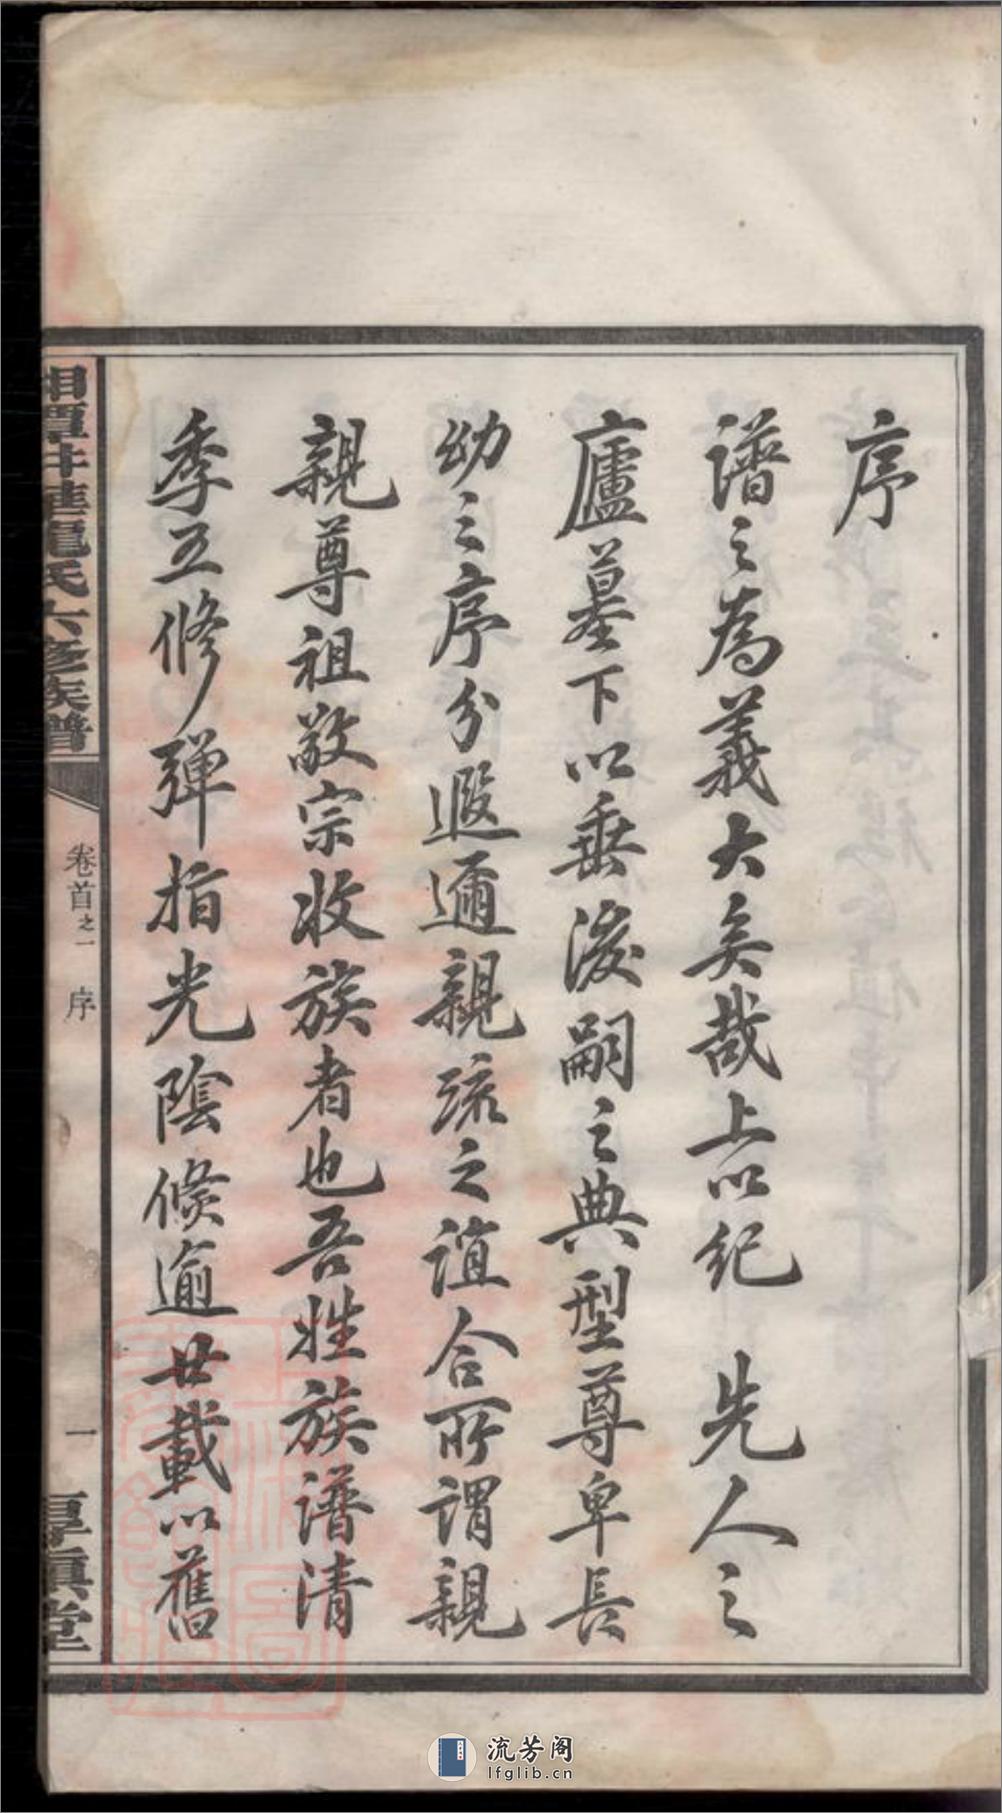 序
譜之為義大矣哉上以纪　先人之
廬墓下以垂後嗣之典型尊卑長
幼之序分遐邇親疏之谊合所謂親
親尊祖敬宗收族者也吾姓族譜清
季五修弹指光陰倏逾廿載以舊
湘潭井塘龍氏六修族譜
卷首之一　序
一
厚慎堂
流芳阁
lfglib.cn